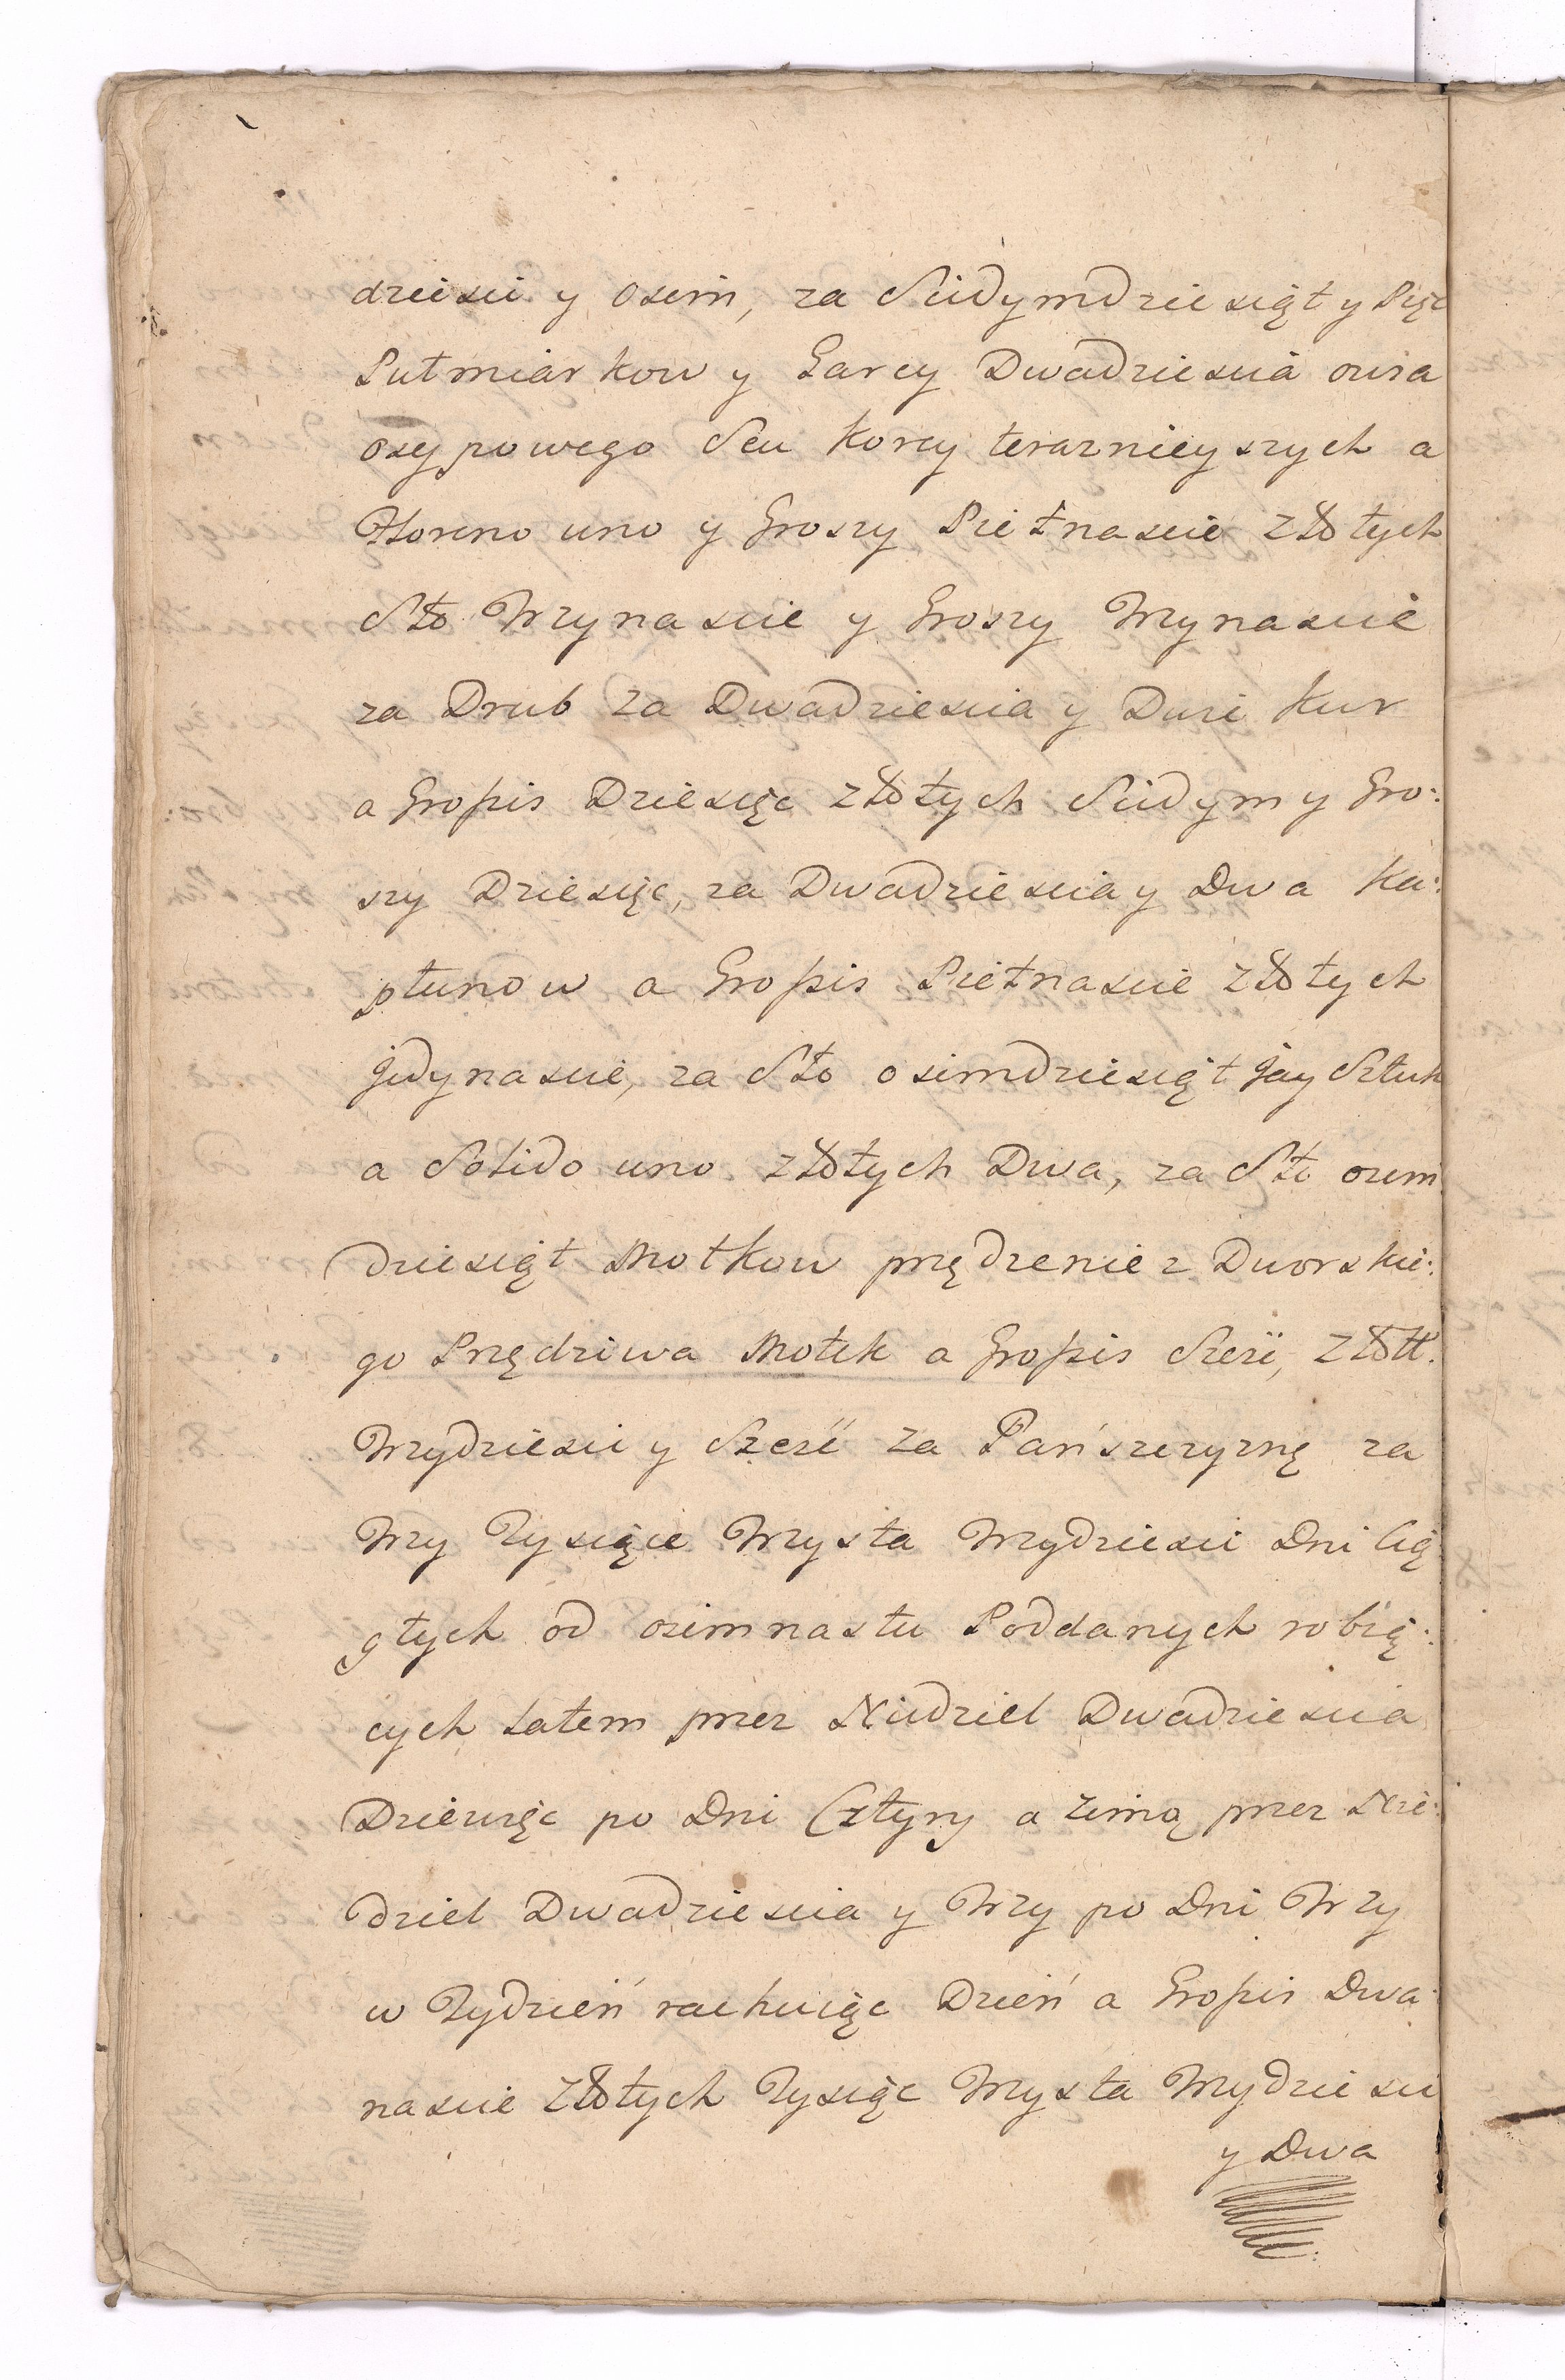 dziesci y Osim, za Siedymdziesiąt y Pięc
Putmiarkow y Garcy Dwadziescia owsa
osypowego Seu Korcy terazniejszych a
Floreno uno y Groszy Piętnascie Złotych
Sto Trzynascie y Groszy Trzynascie
za Drub za Dwadziescia y Dwie Kur
a Grossis Dziesięc Złotych Siedym y Gro:
szy Dziesięc, za Dwadziescia y Dwa Ka:
płunow a Grossis Pietnascie Złotych
Jedynascie, za Sto osimdziesiąt Jay Sztuk
a Solido uno Złotych Dwa, za Sto osim
dziesiąt Motkow przędzenie z Dworskie:
go Przędziwa Motek a Grossis Szesć, Złott.
Trzydziesci y Szesć za Pańszczyznę za
Trzy Tysiące Trzysta Trzydziesci Dni Cią
głych od osimnastu Poddanych robią:
cych Latem przez Niedziel Dwadziescia
Dziewięc po Dni Cztyry a zimą przez Nie:
dziel Dwadziescia y Trzy po Dni Trzy
w Tydzień rachuiąc Dzień a Grossis Dwa
nascie Złotych Tysiąc Trzysta Trzydziesci
y Dwa